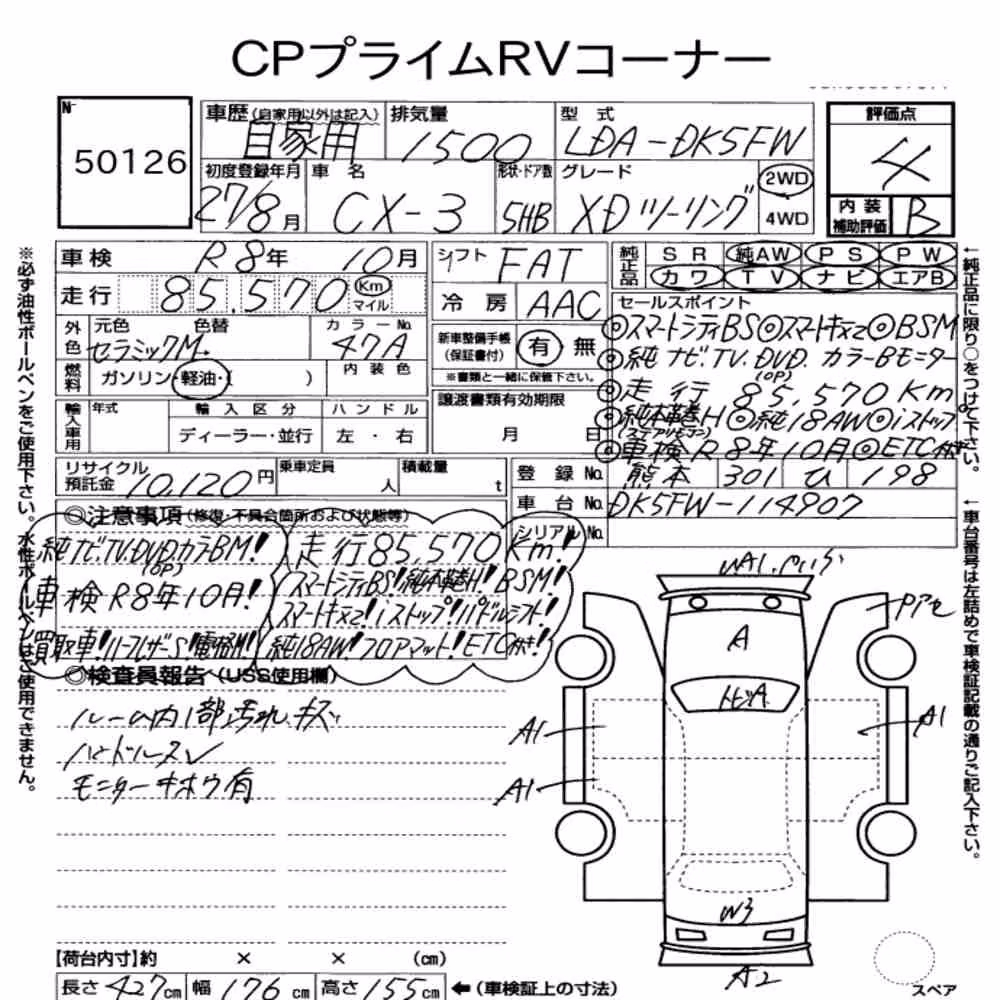 CPプライムRVコーナー
No.
50126
車歴(自家用以外は記入)
自家用
排気量
1500
型式
LDA-DK5FW
評価点
4
初度登録年月
27/8月
車名
CX-3
形状・ドア数
5HB
グレード
XDツーリング
2WD
4WD
内装補助評価
B
車検 R8年10月
走行 85,570 Km マイル
シフト FAT
冷房 AAC
純正品
SR 純AW PS PW
カワ TV ナビ エアB
外色
元色 色替
セラミックM
カラーNo.
47A
内装色
新車整備手帳(保証書付)
有・無
※書類と一緒に保管下さい。
燃料
ガソリン・軽油・( )
セールスポイント
◎スマートシティBS◎スマートキー×2◎BSM
◎純ナビ.TV.DVD.カラーBモニター
(OP)
◎走行 85,570Km
◎純本革巻H◎純18AW◎iストップ
(ステアリモコン)
◎車検R8年10月◎ETC付き
輸入車用
年式
輸入区分
ハンドル
ディーラー・並行
左・右
譲渡書類有効期限
月 日
リサイクル預託金
10,120円
乗車定員
人
積載量
t
登録No. 熊本 301 ひ 198
車台No. DK5FW-114907
シリアルNo.
◎注意事項(修復・不具合箇所および状態等)
純ナビ.TV.DVD.カラーBM!
(OP)
車検R8年10月!
買取車!ハーフレザーS!電格M!
走行85,570Km!
スマートシティBS!純本革巻H!BSM!
スマートキー×2!iストップ!パドルシフト!
純18AW!フロアマット!ETC付き!
◎検査員報告(USS使用欄)
ルーム内1部汚れ.キズ
ハンドルスレ
モニターキホウ有
A
トビA
A1
A1
A1
W3
A2
【荷台内寸】約 × × (cm)
長さ 427cm 幅 176cm 高さ 155cm ←(車検証上の寸法)
スペア
※必ず油性ボールペンをご使用下さい。水性ボールペンはご使用できません。
←純正品に限り○をつけて下さい。
←車台番号は左詰めで車検証記載の通りご記入下さい。